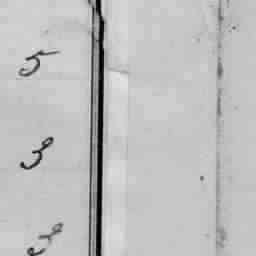 5
3
3